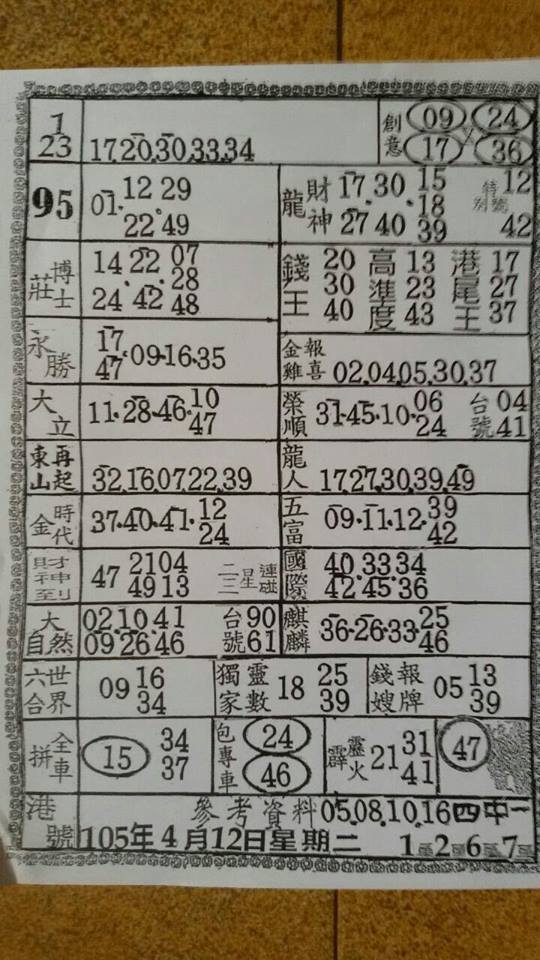 1
23
17.20.30.33.34
創意
09
24
17
36
95
01.
12 29
22 49
龍
財神
17.30
27 40
15
18
39
特別號
12
42
莊
博士
14 22 07
28
24 42 48
錢王
20
30
40
高準度
13
23
43
港尾王
17
27
37
永勝
17
47
09.16.35
金雞
報喜
02.04.05.30.37
大立
11.28.46.10
47
榮順
31.45.10.06
24
台號
04
41
東山
再起
32.16.07.22.39
龍人
17.27.30.39.49
金
時代
37.40.41.12
24
五富
09.11.12.39
42
財神到
47
21 04
49 13
二三星連碰
國際
40.33.34
42.45.36
大自然
02 10 41
09 26 46
台號
90
61
麒麟
36.26.33.25
46
六合
世界
09
16
34
獨家
靈數
18
25
39
錢嫂
報牌
05
13
39
拼
全車
15
34
37
包專車
24
46
霹
靈火
21
31
41
47
港號
參考資料05.08.10.16四中一
105年4月12日星期二
1區2區6區7區